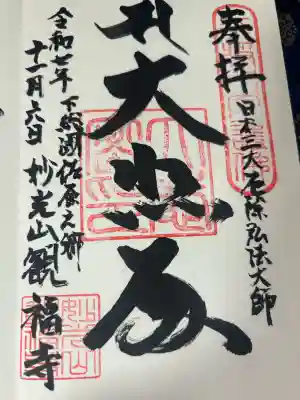 奉拝
日本三大厄除弘法大師
大悲殿
下総国佐原之郷
妙光山観福寺
令和七年
十一月六日